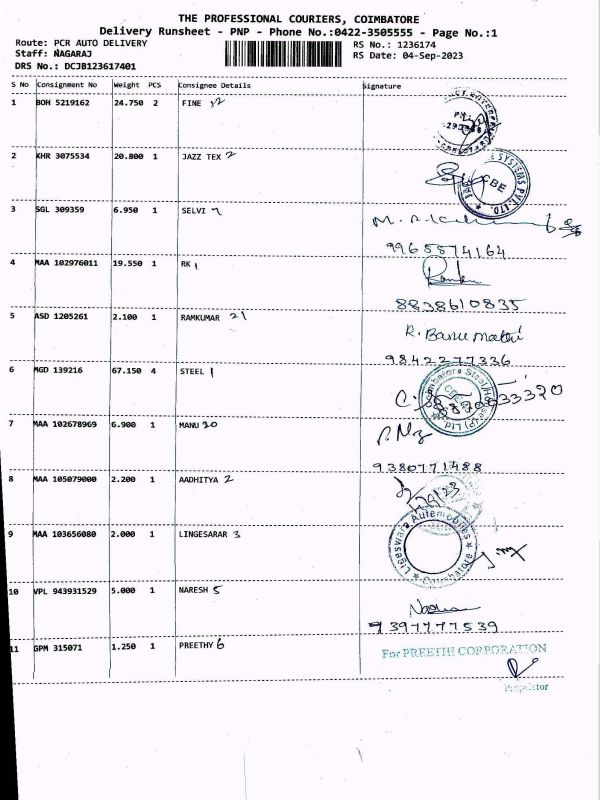 THE PROFESSIONAL COURIERS, COIMBATORE
Delivery Runsheet - PNP - Phone No.:0422-3505555 - Page No.:1
Route: PCR AUTO DELIVERY
Staff: NAGARAJ
DRS No.: DCJB123617401
RS No.: 1236174
RS Date: 04-Sep-2023
S No Consignment No Weight PCS Consignee Details Signature
1 BOH 5219162 24.750 2 FINE
2 KHR 3075534 20.800 1 JAZZ TEX 2
SYSTEMS PVT. LTD.
CBE
3 SGL 309359 6.950 1 SELVI
9965574164
4 MAA 102976011 19.550 1 RK 1
8838610835
5 ASD 1205261 2.100 1 RAMKUMAR 21
R. Banumathi
9842277336
6 MGD 139216 67.150 4 STEEL 1
7 MAA 102678969 6.900 1 MANU 20
9380771488
8 MAA 105079000 2.200 1 AADHITYA 2
9 MAA 103656080 2.000 1 LINGESARAR 3
Ligeswara Automobiles
Coimbatore
10 VPL 943931529 5.000 1 NARESH 5
9397777539
11 GPM 315071 1.250 1 PREETHY 6
For PREETHI CORPORATION
Proprietor